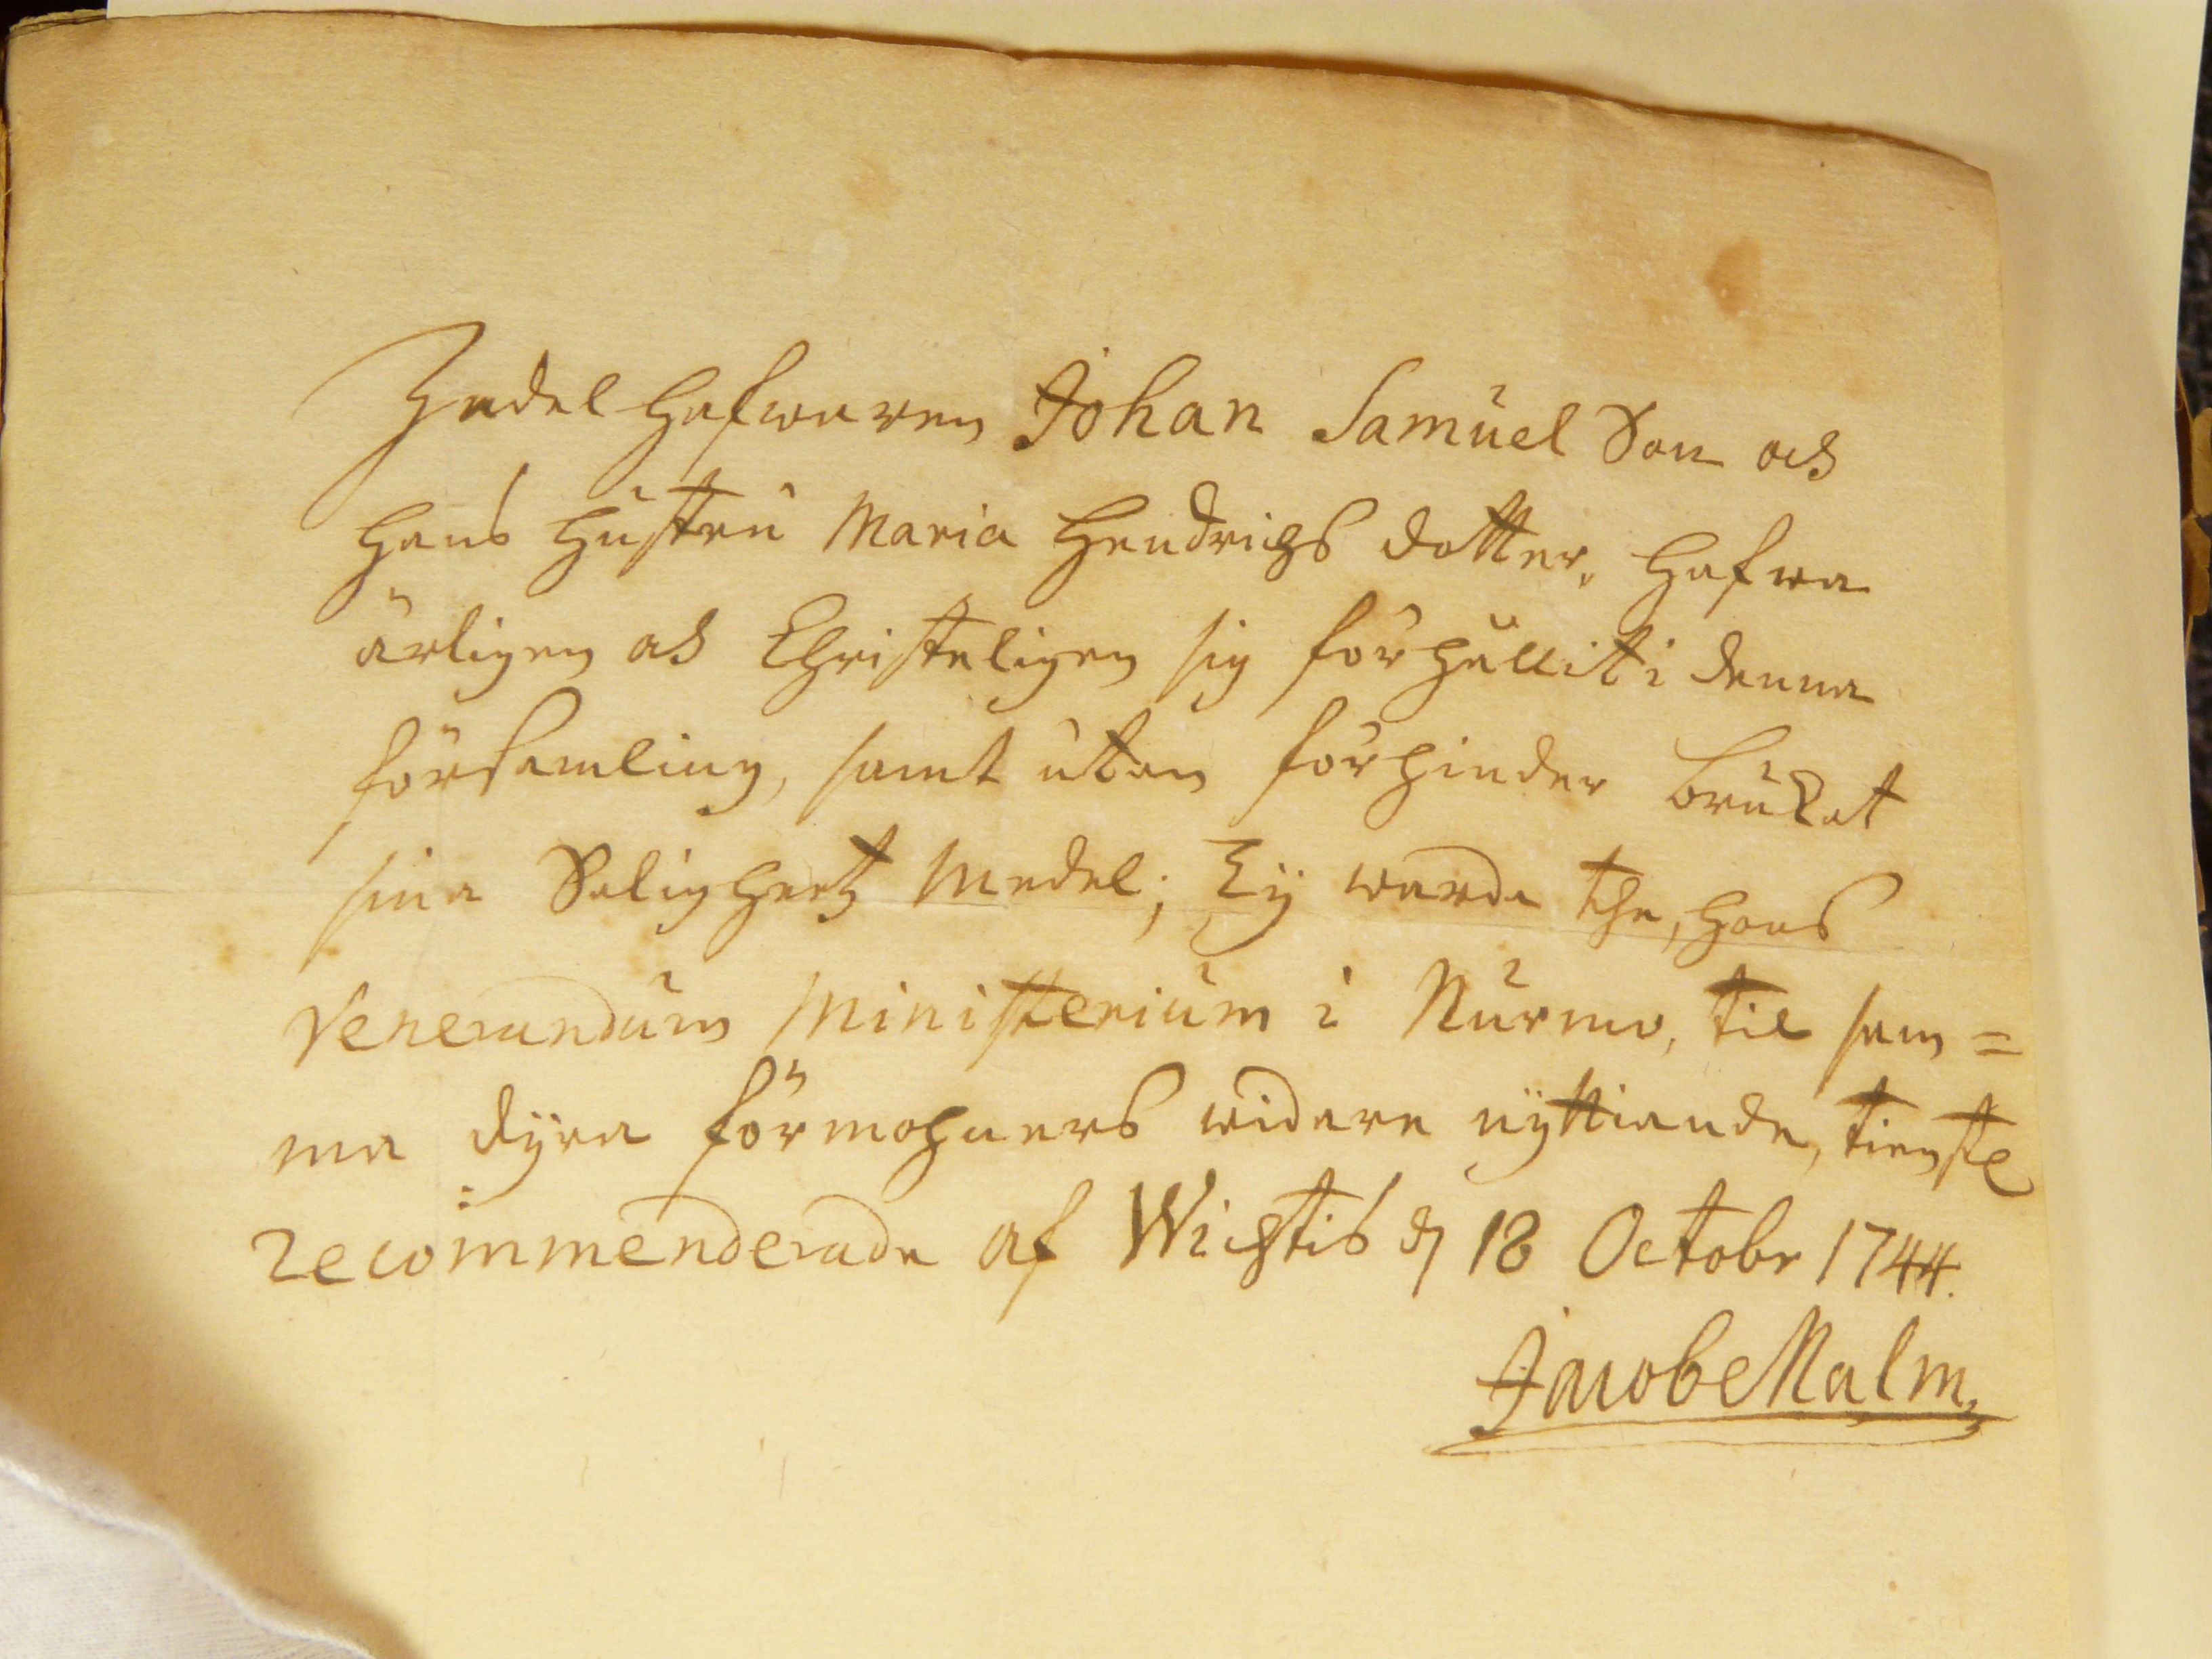 Zedel hafwaren Johan Samuel Son och
hans hustru Maria Hendrichs dotter, hafwa
ärligen och Christeligen sig förhållit i denna
församling, samt utan förhinder brukat
sina Salighetz Medel; Ty warda the, hos
Venerandum Ministerium i Nurmo, til sam=
ma dyra förmohners widare nyttiande, tienstl:
recommenderade af Wichtis d 18 Octobr 1744.
Jacob Malm.